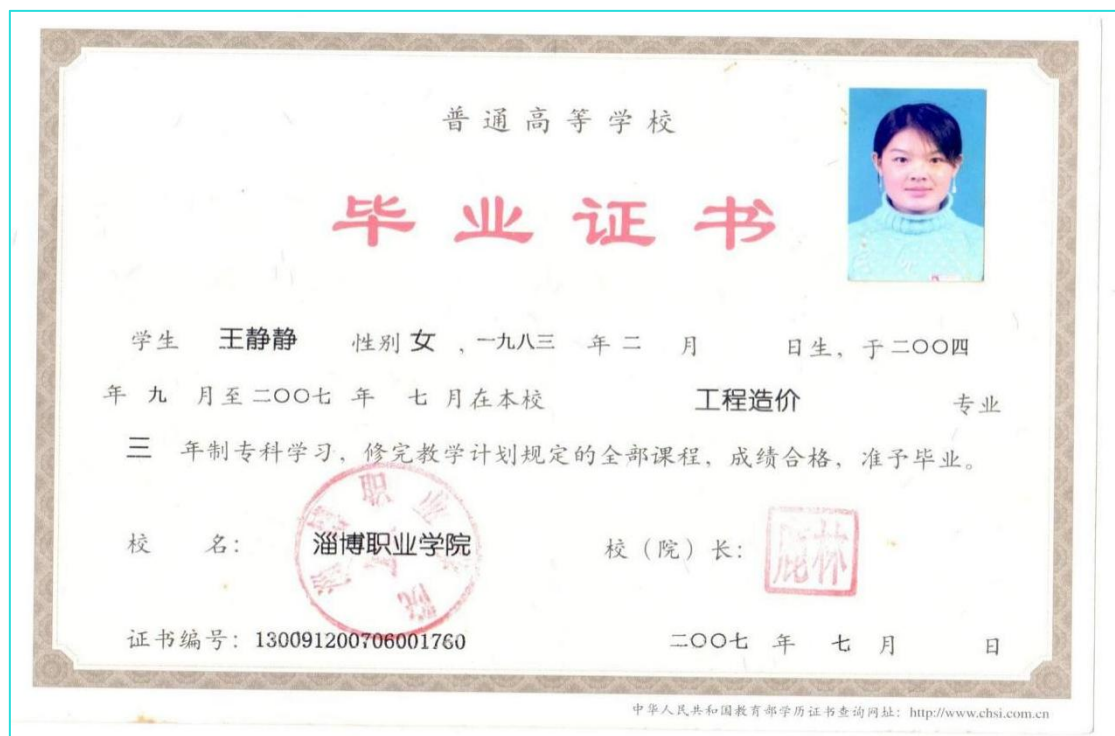 普通高等学校
毕业证书
学生 王静静 性别 女 ，一九八三 年 二 月 日生，于 二〇〇四
年 九 月至 二〇〇七 年 七 月在本校 工程造价 专业
三 年制专科学习，修完教学计划规定的全部课程，成绩合格，准予毕业。
校 名： 淄博职业学院 校（院）长：
证书编号：130091200706001760 二〇〇七 年 七 月 日
中华人民共和国教育部学历证书查询网址：http://www.chsi.com.cn